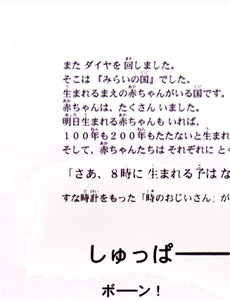 また ダイヤを 回しました。
そこは 『みらいの国』でした。
生まれるまえの赤ちゃんがいる国です。
赤ちゃんは、たくさん いました。
明日生まれる赤ちゃんも いれば、
１００年も２００年もたたないと生まれ
そして、赤ちゃんたちは それぞれに とく
「さあ、８時に 生まれる子は な
すな時計をもった「時のおじいさん」が
しゅっぱ――
ボーン！